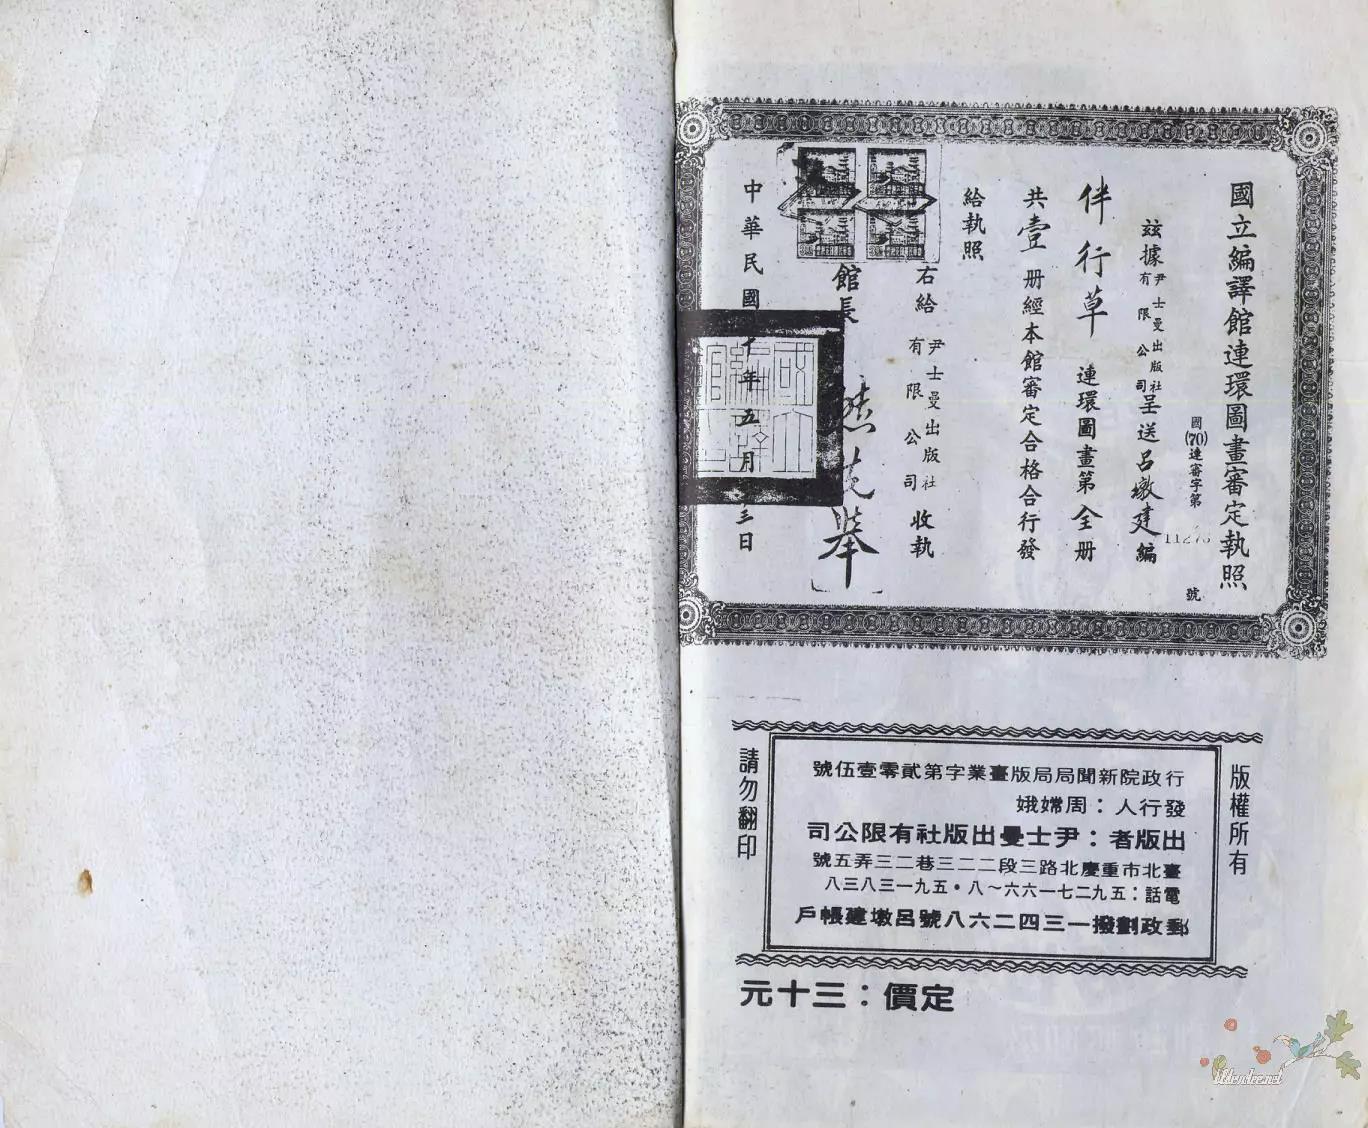 國立編譯館連環圖畫審定執照
國(70)連審字第
號
茲據尹士曼出版社有限公司呈送呂墩建編
伴行草 連環圖畫第全册
共壹册經本館審定合格合行發
給執照
右給 尹士曼出版社有限公司 收執
館長
中華民國
十年五月
三日
版權所有
行政院新聞局局版臺業字第貳零壹伍號
發行人：周嫦娥
出版者：尹士曼出版社有限公司
臺北市重慶北路三段二二三巷二三弄五號
電話：五九二七一六六～八・五九一三八三八
郵政劃撥一三四二六八號呂墩建帳戶
請勿翻印
定價：三十元